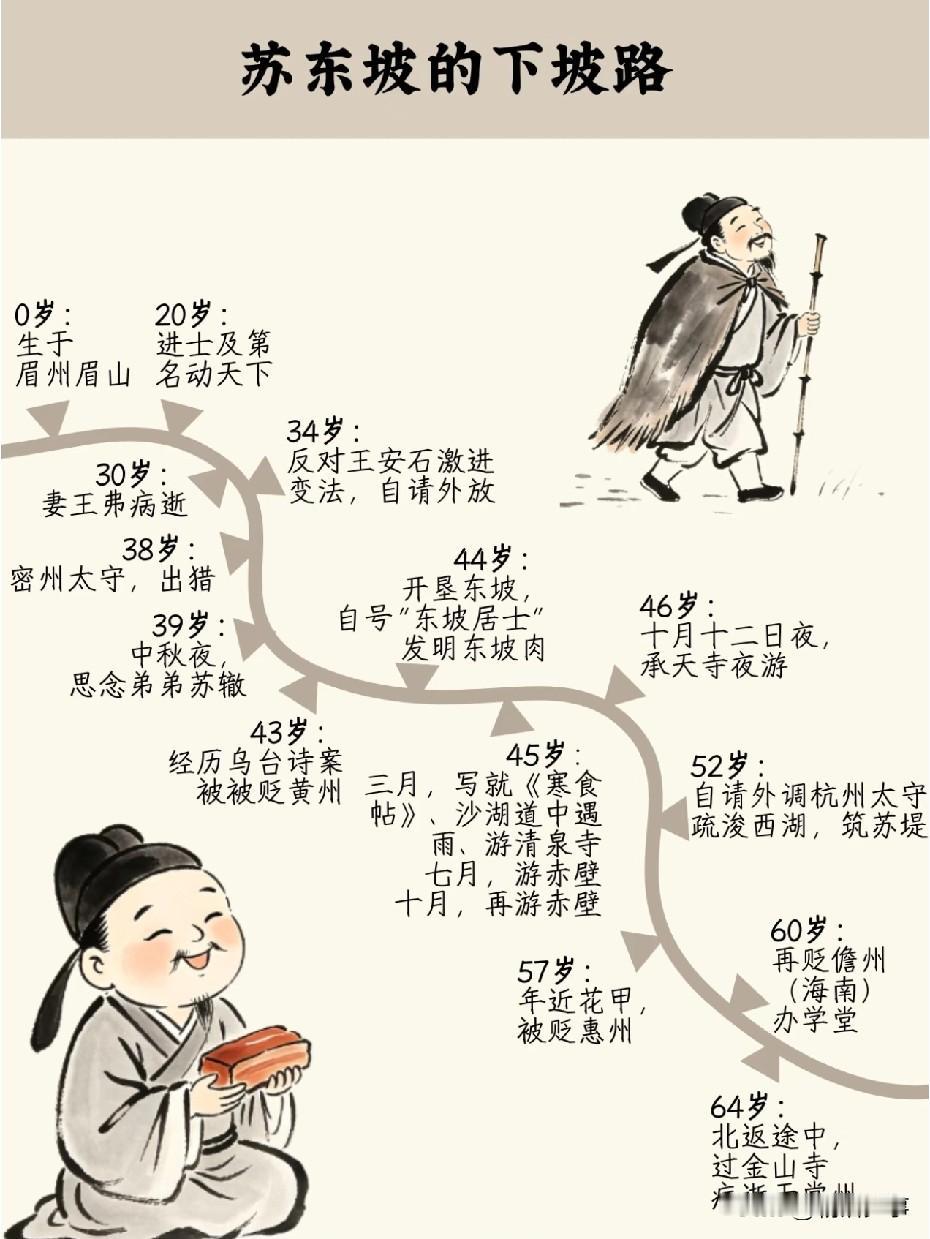 苏东坡的下坡路
0岁：
生于
眉州眉山
20岁：
进士及第
名动天下
30岁：
妻王弗病逝
34岁：
反对王安石激进
变法，自请外放
38岁：
密州太守，出猎
39岁：
中秋夜，
思念弟弟苏辙
43岁：
经历乌台诗案
被被贬黄州
44岁：
开垦东坡，
自号“东坡居士”
发明东坡肉
45岁：
三月，写就《寒食
帖》、沙湖道中遇
雨、游清泉寺
七月，游赤壁
十月，再游赤壁
46岁：
十月十二日夜，
承天寺夜游
52岁：
自请外调杭州太守
疏浚西湖，筑苏堤
57岁：
年近花甲，
被贬惠州
60岁：
再贬儋州
（海南）
办学堂
64岁：
北返途中，
过金山寺